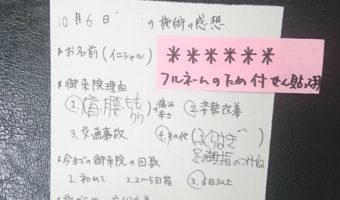 10月6日 の施術の感想
*お名前(イニシャル)
******
フルネームのため付せん貼って
*御来院理由
①.(首、腰もも の痛み ②.姿勢改善
3.交通事故 ④.その他(ふくらはぎ
足の親指のつけね
*今までの御来院の回数
1.初めて 2.2〜5回程 ③.6回以上